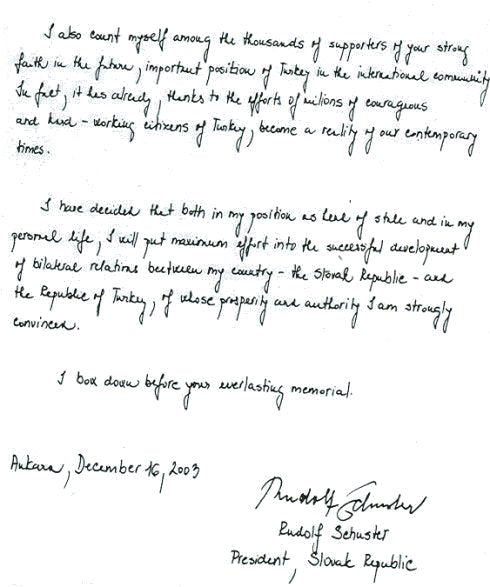 I also count myself among the thousands of supporters of your strong
faith in the future, important position of Turkey in the international community
In fact, it has already, thanks to the efforts of milions of courageous
and hard - working citizens of Turkey, become a reality of our contemporary
times.
I have decided that both in my position as head of state and in my
personal life, I will put maximum effort into the successful development
of bilateral relations beetween my country - the Slovak Republic - and
the Republic of Turkey, of whose prosperity and authority I am strongly
convinced.
I bow down before your everlasting memorial.
Ankara, December 16, 2003
Rudolf Schuster
Rudolf Schuster
President, Slovak Republic